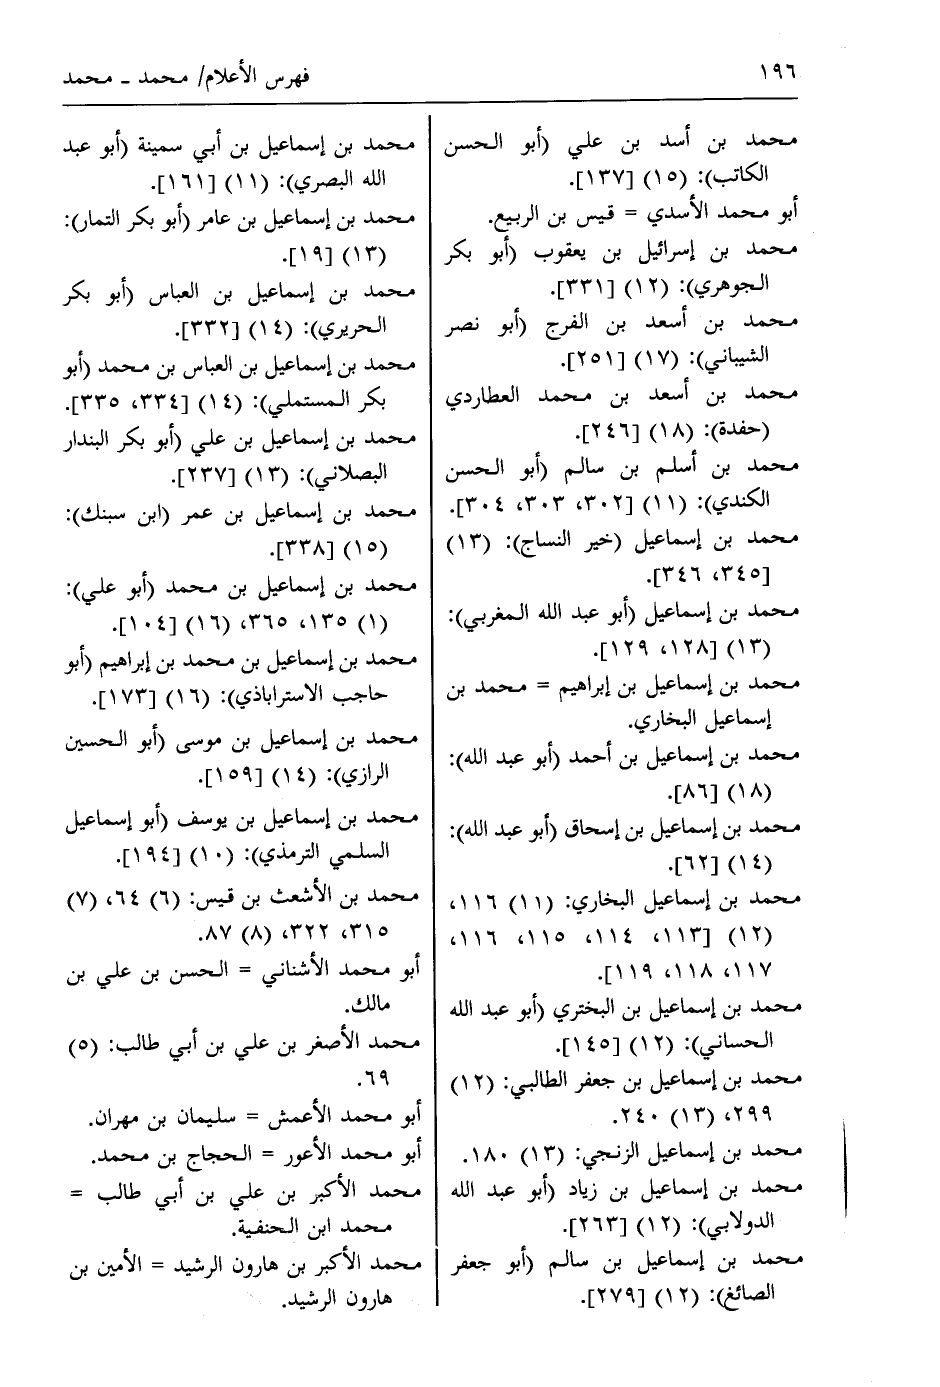 ١٩٦
فهرس الأعلام/ محمد ـ محمد
محمد بن أسد بن علي (أبو الحسن
الكاتب): (١٥) [١٣٧].
أبو محمد الأسدي = قيس بن الربيع.
محمد بن إسرائيل بن يعقوب (أبو بكر
الجوهري): (١٢) [٣٣١].
محمد بن أسعد بن الفرج (أبو نصر
الشيباني): (١٧) [٢٥١].
محمد بن أسعد بن محمد العطاردي
(حفدة): (١٨) [٢٤٦].
محمد بن أسلم بن سالم (أبو الحسن
الكندي): (١١) [٣٠٢، ٣٠٣، ٣٠٤].
محمد بن إسماعيل (خير النساج): (١٣)
[٣٤٥، ٣٤٦].
محمد بن إسماعيل (أبو عبد الله المغربي):
(١٣) [١٢٨، ١٢٩].
محمد بن إسماعيل بن إبراهيم = محمد بن
إسماعيل البخاري.
محمد بن إسماعيل بن أحمد (أبو عبد الله):
(١٨) [٨٦].
محمد بن إسماعيل بن إسحاق (أبو عبد الله):
(١٤) [٦٢].
محمد بن إسماعيل البخاري: (١١) ١١٦،
(١٢) [١١٣، ١١٤، ١١٥، ١١٦،
١١٧، ١١٨، ١١٩].
محمد بن إسماعيل بن البختري (أبو عبد الله
الحساني): (١٢) [١٤٥].
محمد بن إسماعيل بن جعفر الطالبي: (١٢)
٢٩٩، (١٣) ٢٤٠.
محمد بن إسماعيل الزنجي: (١٣) ١٨٠.
محمد بن إسماعيل بن زياد (أبو عبد الله
الدولابي): (١٢) [٢٦٣].
محمد بن إسماعيل بن سالم (أبو جعفر
الصائغ): (١٢) [٢٧٩].
محمد بن إسماعيل بن أبي سمينة (أبو عبد
الله البصري): (١١) [١٦١].
محمد بن إسماعيل بن عامر (أبو بكر التمار):
(١٣) [١٩].
محمد بن إسماعيل بن العباس (أبو بكر
الحريري): (١٤) [٣٣٢].
محمد بن إسماعيل بن العباس بن محمد (أبو
بكر المستملي): (١٤) [٣٣٤، ٣٣٥].
محمد بن إسماعيل بن علي (أبو بكر البندار
البصلاني): (١٣) [٢٣٧].
محمد بن إسماعيل بن عمر (ابن سبنك):
(١٥) [٣٣٨].
محمد بن إسماعيل بن محمد (أبو علي):
(١) ١٣٥، ٣٦٥، (١٦) [١٠٤].
محمد بن إسماعيل بن محمد بن إبراهيم (أبو
حاجب الاستراباذي): (١٦) [١٧٣].
محمد بن إسماعيل بن موسى (أبو الحسين
الرازي): (١٤) [١٥٩].
محمد بن إسماعيل بن يوسف (أبو إسماعيل
السلمي الترمذي): (١٠) [١٩٤].
محمد بن الأشعث بن قيس: (٦) ٦٤، (٧)
٣١٥، ٣٢٢، (٨) ٨٧.
أبو محمد الأشناني = الحسن بن علي بن
مالك.
محمد الأصغر بن علي بن أبي طالب: (٥)
٦٩.
أبو محمد الأعمش = سليمان بن مهران.
أبو محمد الأعور = الحجاج بن محمد.
محمد الأكبر بن علي بن أبي طالب =
محمد ابن الحنفية.
محمد الأكبر بن هارون الرشيد = الأمين بن
هارون الرشيد.